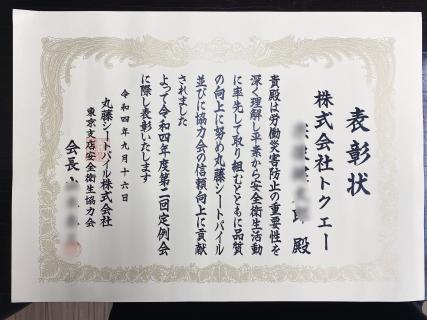 表彰状
株式会社トクエー
殿
貴殿は労働災害防止の重要性を
深く理解し平素から安全衛生活動
に率先して取り組むとともに品質
の向上に努め丸藤シートパイル
並びに協力会の信頼向上に貢献
されました
よって令和四年度第二回定例会
に際し表彰いたします
令和四年九月十六日
丸藤シートパイル株式会社
東京支店安全衛生協力会
会長